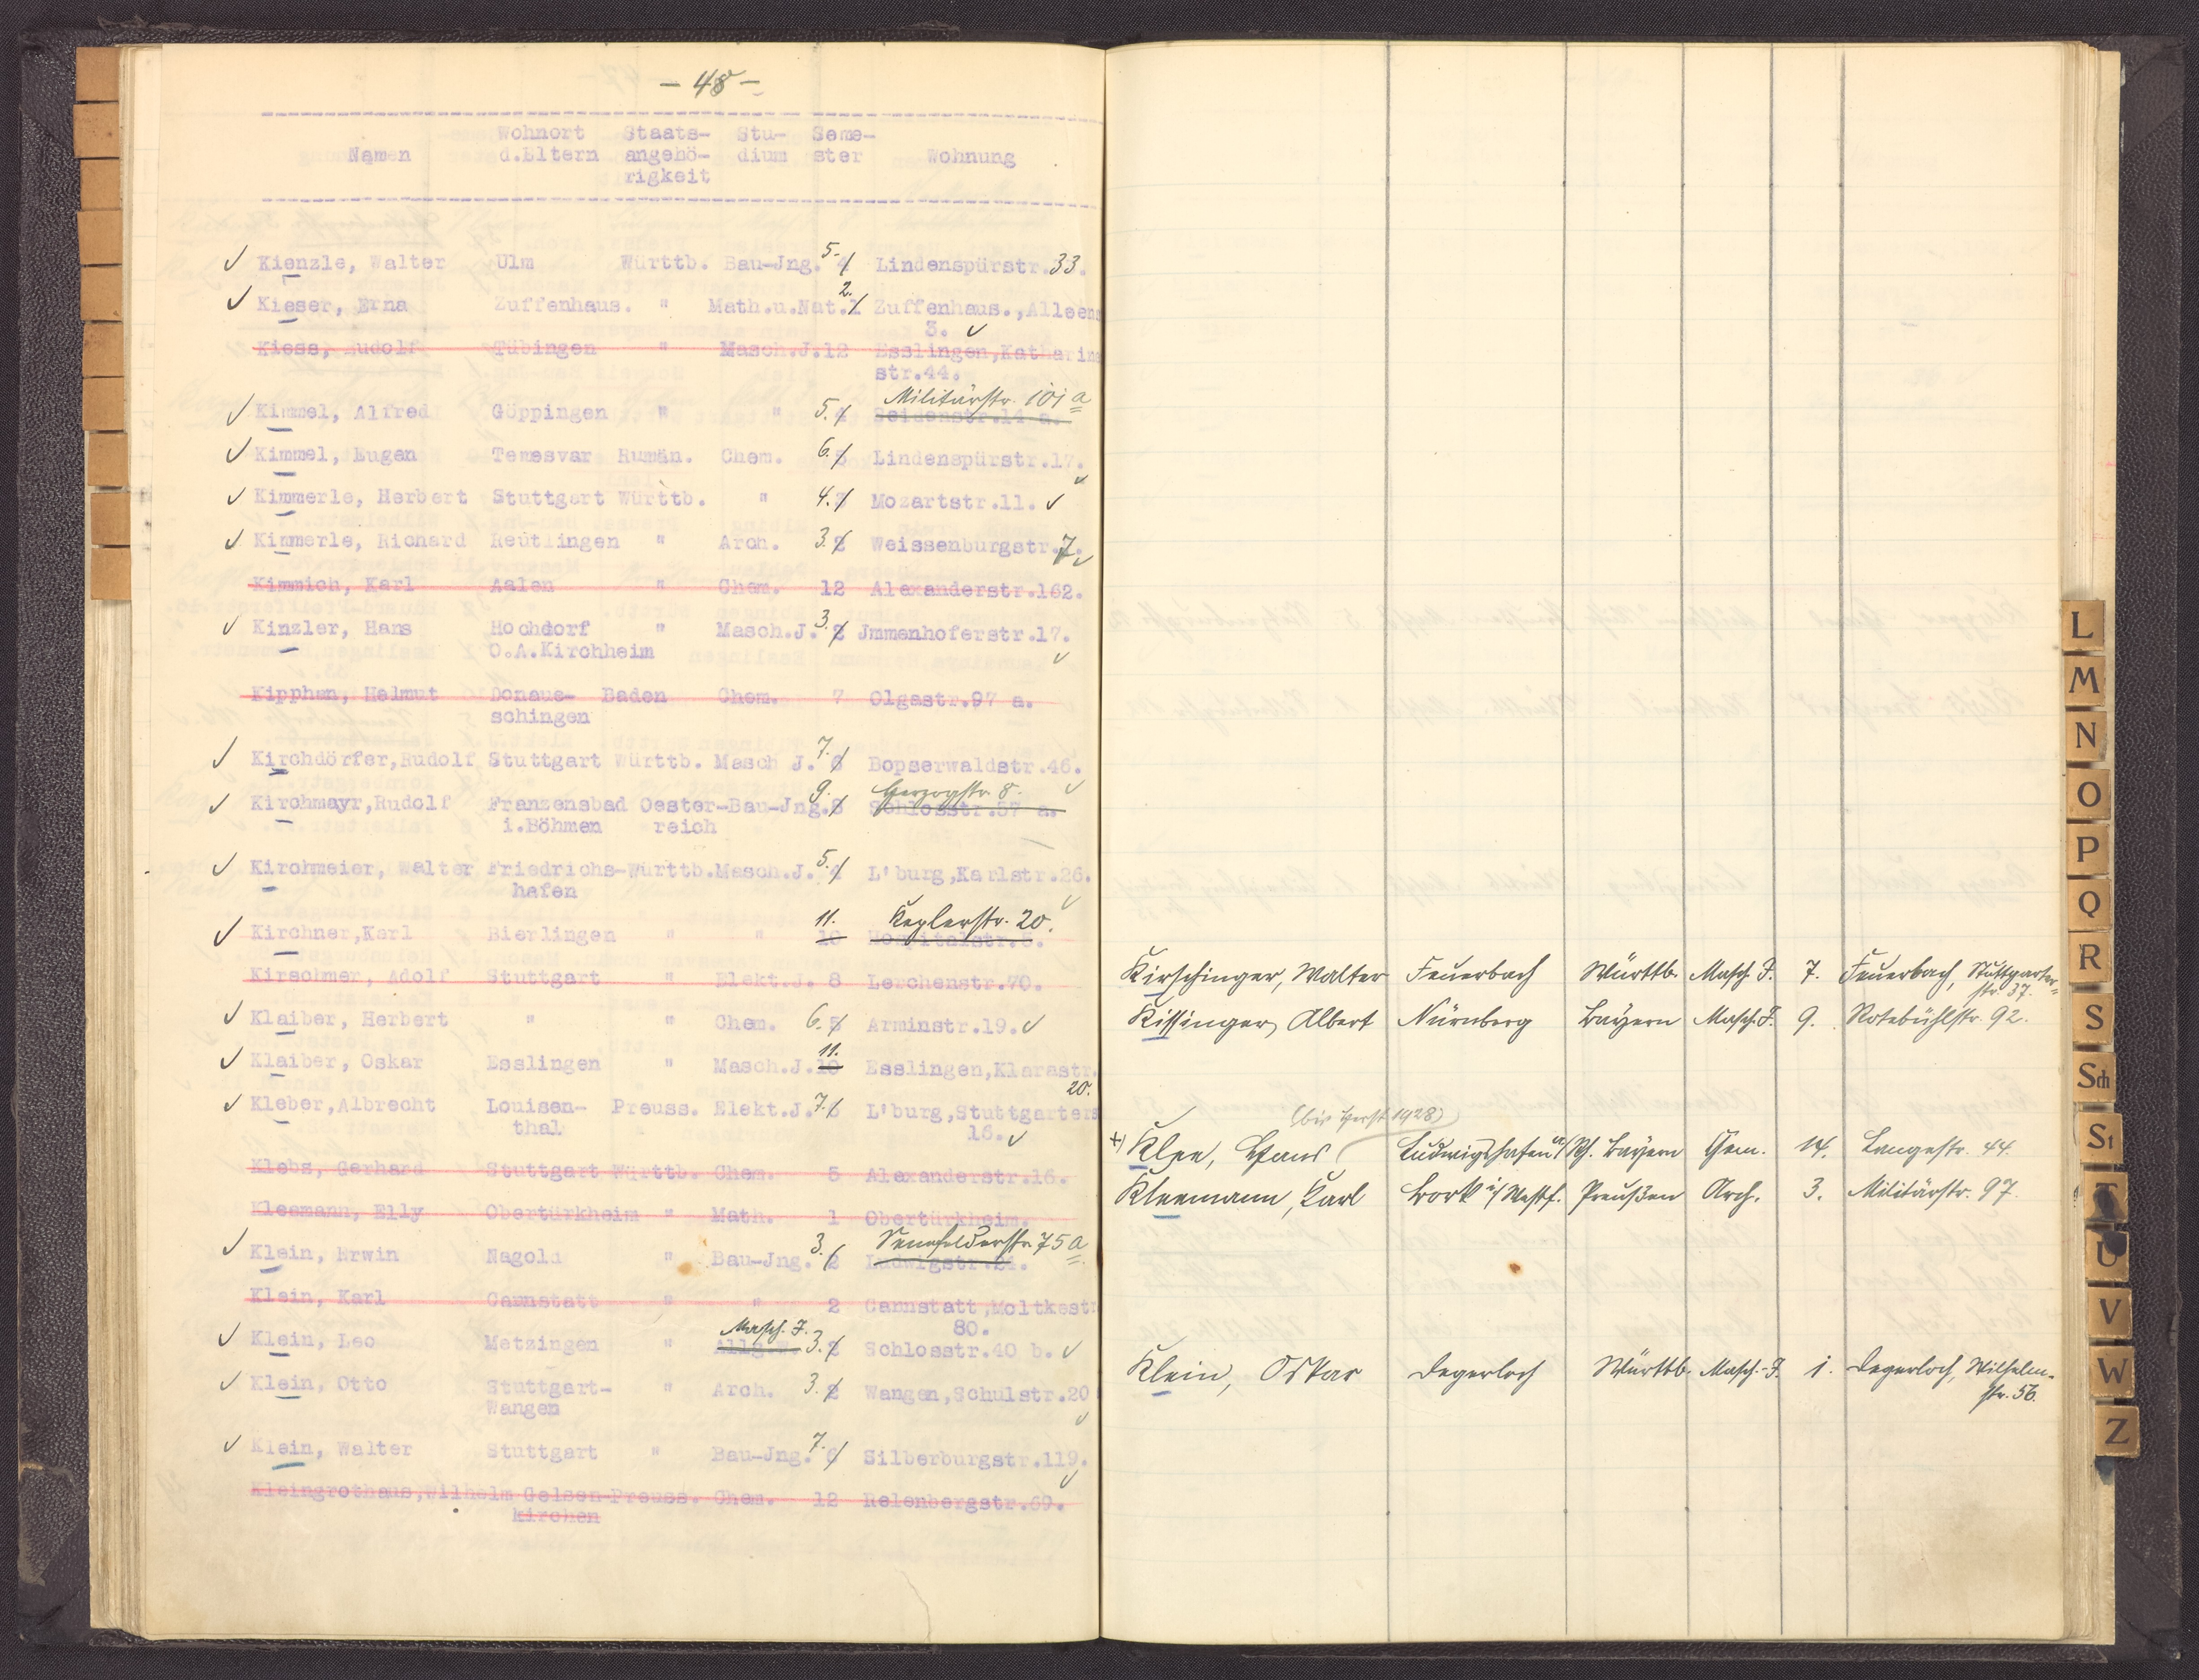 - 48 -
Namen Wohnort d.Eltern Staats- angehö- rigkeit Stu- dium Seme- ster Wohnung
Kienzle, Walter Ulm Württb. Bau-Jng. 5. 4 Lindenspürstr.33.
Kieser, Erna Zuffenhaus. " Math.u.Nat. 2. 1 Zuffenhaus.,Alleens
3.
Kiess, Rudolf Tübingen " Masch.J.12 Esslingen,Katharine
str.44.
Militärstr. 101 a
Kimmel, Alfred Göppingen " " 5. 4 Seidenstr.14 a.
Kimmel, Eugen Temesvar Rumän. Chem. 6. 5 Lindenspürstr.17.
Kimmerle, Herbert Stuttgart Württb. " 4. 3 Mozartstr.11.
Kimmerle, Richard Reutlingen " Arch. 3. 2 Weissenburgstr.7.
Kimmich, Karl Aalen " Chem. 12 Alexanderstr.162.
Kinzler, Hans Hochdorf " Masch.J. 3. 2 Jmmenhoferstr.17.
O.A.Kirchheim
Kipphan, Helmut Donaue- Baden Chem. 7 Olgastr.97 a.
schingen
Kirchdörfer,Rudolf Stuttgart Württb. Masch J. 7. 6 Bopserwaldstr.46.
Herzogstr. 8.
Kirchmayr,Rudolf Franzensbad Oester-Bau-Jng. 9. 8 Schlosstr.57 a.
i.Böhmen reich
Kirchmeier, Walter Friedrichs-Württb.Masch.J. 5. 4 L'burg,Karlstr.26.
hafen
11. Keplerstr. 20.
Kirchner,Karl Bierlingen " " 10 Hospitalstr.8.
Kirschmer, Adolf Stuttgart " Elekt.J. 8 Lerchenstr.70.
Klaiber, Herbert " " Chem. 6. 5 Arminstr.19.
Klaiber, Oskar Esslingen " Masch.J. 11. 10 Esslingen,Klarastr.
20.
Kleber,Albrecht Louisen- Preuss. Elekt.J. 7. 6 L'burg,Stuttgarters
thal 16.
Klebs, Gerhard Stuttgart Württb. Chem. 5 Alexanderstr.16.
Kleemann, Elly Obertürkheim " Math. 1 Obertürkheim.
Senefelderstr. 75 a
Klein, Erwin Nagold " Bau-Jng. 3. 2 Ludwigstr.21.
Klein, Karl Cannstatt " " 2 Cannstatt,Moltkestr
80.
Masch. J.
Klein, Leo Metzingen " 3. 2 Schlosstr.40 b.
Klein, Otto Stuttgart- " Arch. 3. 2 Wangen,Schulstr.20
Wangen
Klein, Walter Stuttgart " Bau-Jng. 7. 6 Silberburgstr.119.
Kleingrothaus,Wilhelm Gelsen-Preuss. Chem. 12 Relenbergstr.69.
kirchen
Kirschinger, Walter Feuerbach Württb. Masch. J. 7. Feuerbach, Stuttgarter-
str. 37.
Kissinger, Albert Nürnberg Bayern Masch. J. 9. Rotebühlstr. 92.
(bis Herbst 1928)
x) Klee, Hans Ludwigshafen a/Rh. Bayern Chem. 14. Langestr. 44.
Kleemann, Karl Bork i/Westf. Preußen Arch. 3. Militärstr. 97.
Klein, Oskar Degerloch Württb. Masch.-J. 1. Degerloch, Wilhelm-
str. 56.
L
M
N
O
P
Q
R
S
Sch
St
T
U
V
W
Z